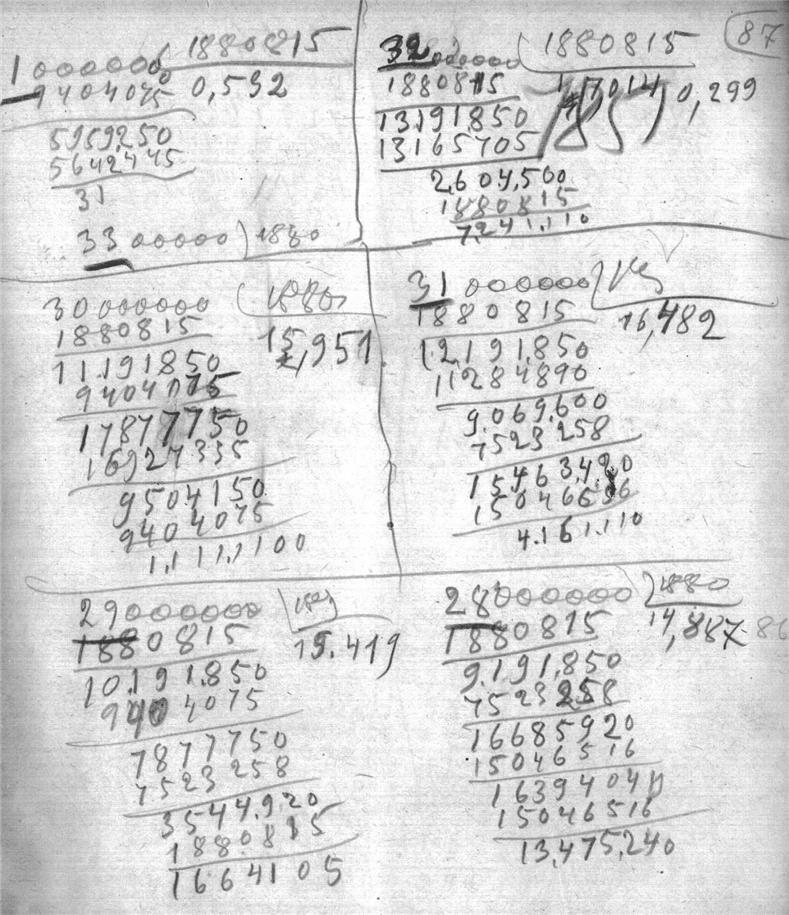 87
1000000 1880815
9404075 0,532
5959250
5642445
31
3300000 1880
32000000 1880815
1880815 17014 0,299
13191850
13165705
2,604,500
1880815
7,241,110
30000000 1880
1880815 15,951
11191850
9404075
17877750
16927335
9504150
9404075
1,111,1100
31000000
1880815 16,482
12,191,850
11284890
9.069,600
7523258
15463,420
15046656
4.161.110
29000000 188
1880815 15.419
10.191.850
9404075
7877750
7523258
3544.920
1880815
1664105
28000000 1880
1880815 14,887
9.191,850
7523258
16685920
15046516
16394040
15046516
13,475,240